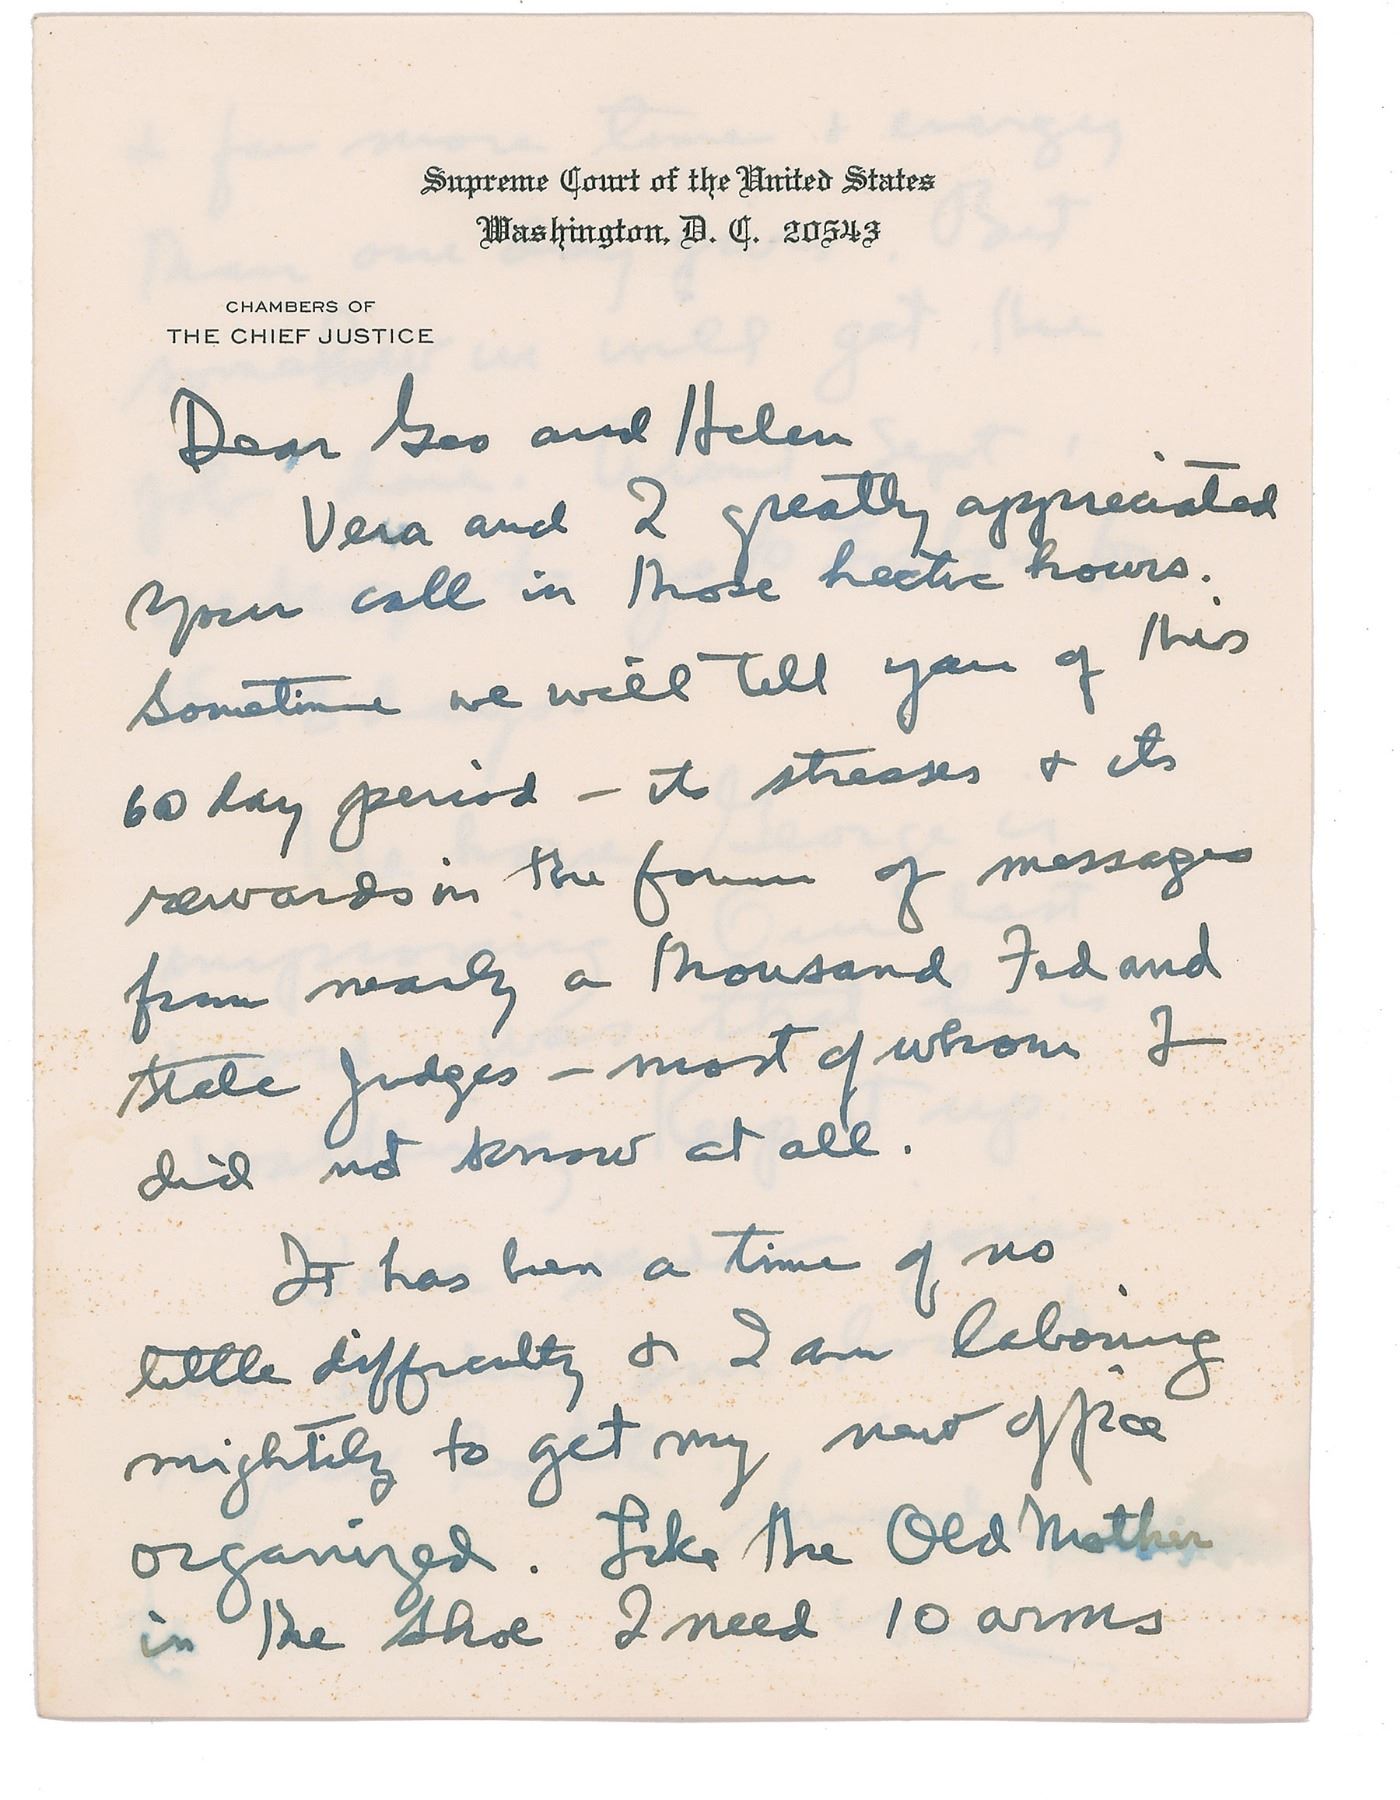 Supreme Court of the United States
Washington, D. C. 20543
CHAMBERS OF
THE CHIEF JUSTICE
Dear Geo and Helen
Vera and I greatly appreciated
your call in those hectic hours.
Sometime we will tell you of this
60 day period – its stresses & its
rewards in the form of messages
from nearly a thousand Fed and
State Judges – most of whom I
did not know at all.
It has been a time of no
little difficulty & I am laboring
mightily to get my new office
organized. Like the Old Mother
in the Shoe I need 10 arms